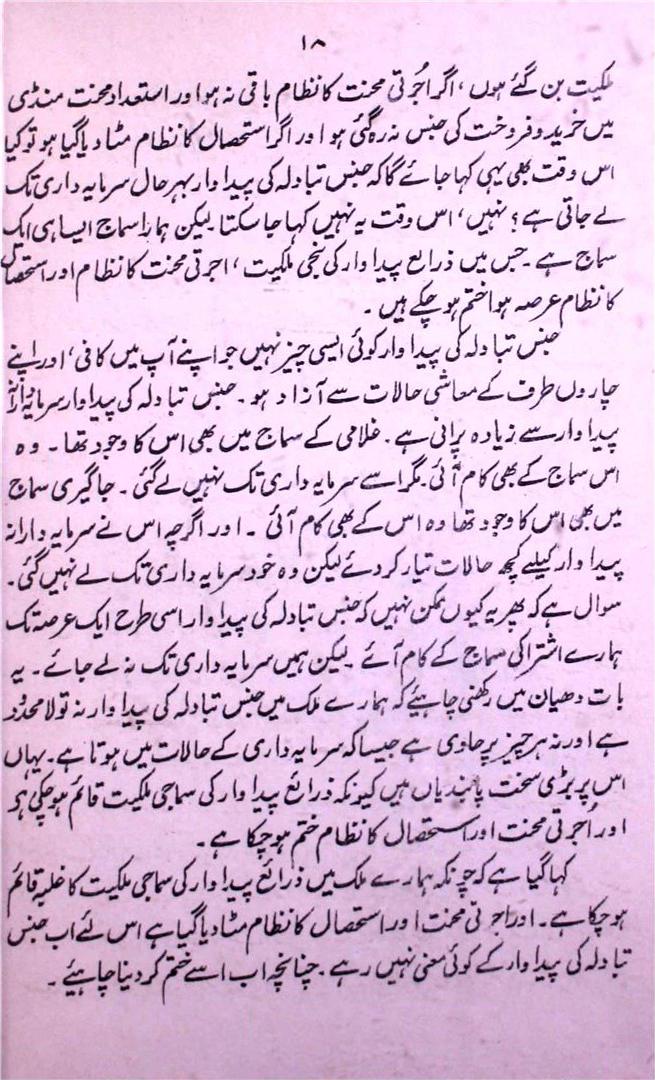 ۱۸
ملکیت بن گئے ہوں، اگر اُجرتی محنت کا نظام باقی نہ ہو اور استعداد محنت منڈی
میں خرید و فروخت کی جنس نہ رہ گئی ہو اور اگر استحصال کا نظام مٹا دیا گیا ہو تو کیا
اس وقت بھی یہی کہا جائے گا کہ جنس تبادلہ کی پیداوار بہر حال سرمایہ داری تک
لے جاتی ہے؟ نہیں، اس وقت یہ نہیں کہا جا سکتا لیکن ہمارا سماج ایسا ہی ایک
سماج ہے۔ جس میں ذرائع پیداوار کی نجی ملکیت، اجرتی محنت کا نظام اور استحصال
کا نظام عرصہ ہوا ختم ہو چکے ہیں۔
جنس تبادلہ کی پیداوار کوئی ایسی چیز نہیں جو اپنے آپ میں کافی، اور اپنے
چاروں طرف کے معاشی حالات سے آزاد ہو۔ جنس تبادلہ کی پیداوار سرمایہ دارانہ
پیداوار سے زیادہ پرانی ہے۔ غلامی کے سماج میں بھی اس کا وجود تھا۔ وہ
اس سماج کے بھی کام آئی۔ مگر اسے سرمایہ داری تک نہیں لے گئی۔ جاگیری سماج
میں بھی اس کا وجود تھا وہ اس کے بھی کام آئی۔ اور اگرچہ اس نے سرمایہ دارانہ
پیداوار کیلئے کچھ حالات تیار کر دئے لیکن وہ خود سرمایہ داری تک لے نہیں گئی۔
سوال ہے کہ پھر یہ کیوں ممکن نہیں کہ جنس تبادلہ کی پیداوار اسی طرح ایک عرصہ تک
ہمارے اشتراکی سماج کے کام آئے لیکن ہمیں سرمایہ داری تک نہ لے جائے۔ یہ
بات دھیان میں رکھنی چاہیئے کہ ہمارے ملک میں جنس تبادلہ کی پیداوار نہ تو لا محدود
ہے اور نہ ہر چیز پر حاوی ہے جیسا کہ سرمایہ داری کے حالات میں ہوتا ہے۔ یہاں
اس پر بڑی سخت پابندیاں ہیں کیونکہ ذرائع پیداوار کی سماجی ملکیت قائم ہو چکی ہے
اور اُجرتی محنت اور استحصال کا نظام ختم ہو چکا ہے۔
کہا گیا ہے کہ چونکہ ہمارے ملک میں ذرائع پیداوار کی سماجی ملکیت کا غلبہ قائم
ہو چکا ہے۔ اور اجرتی محنت اور استحصال کا نظام مٹا دیا گیا ہے اس لئے اب جنس
تبادلہ کی پیداوار کے کوئی معنی نہیں رہے۔ چنانچہ اب اسے ختم کر دینا چاہیئے۔